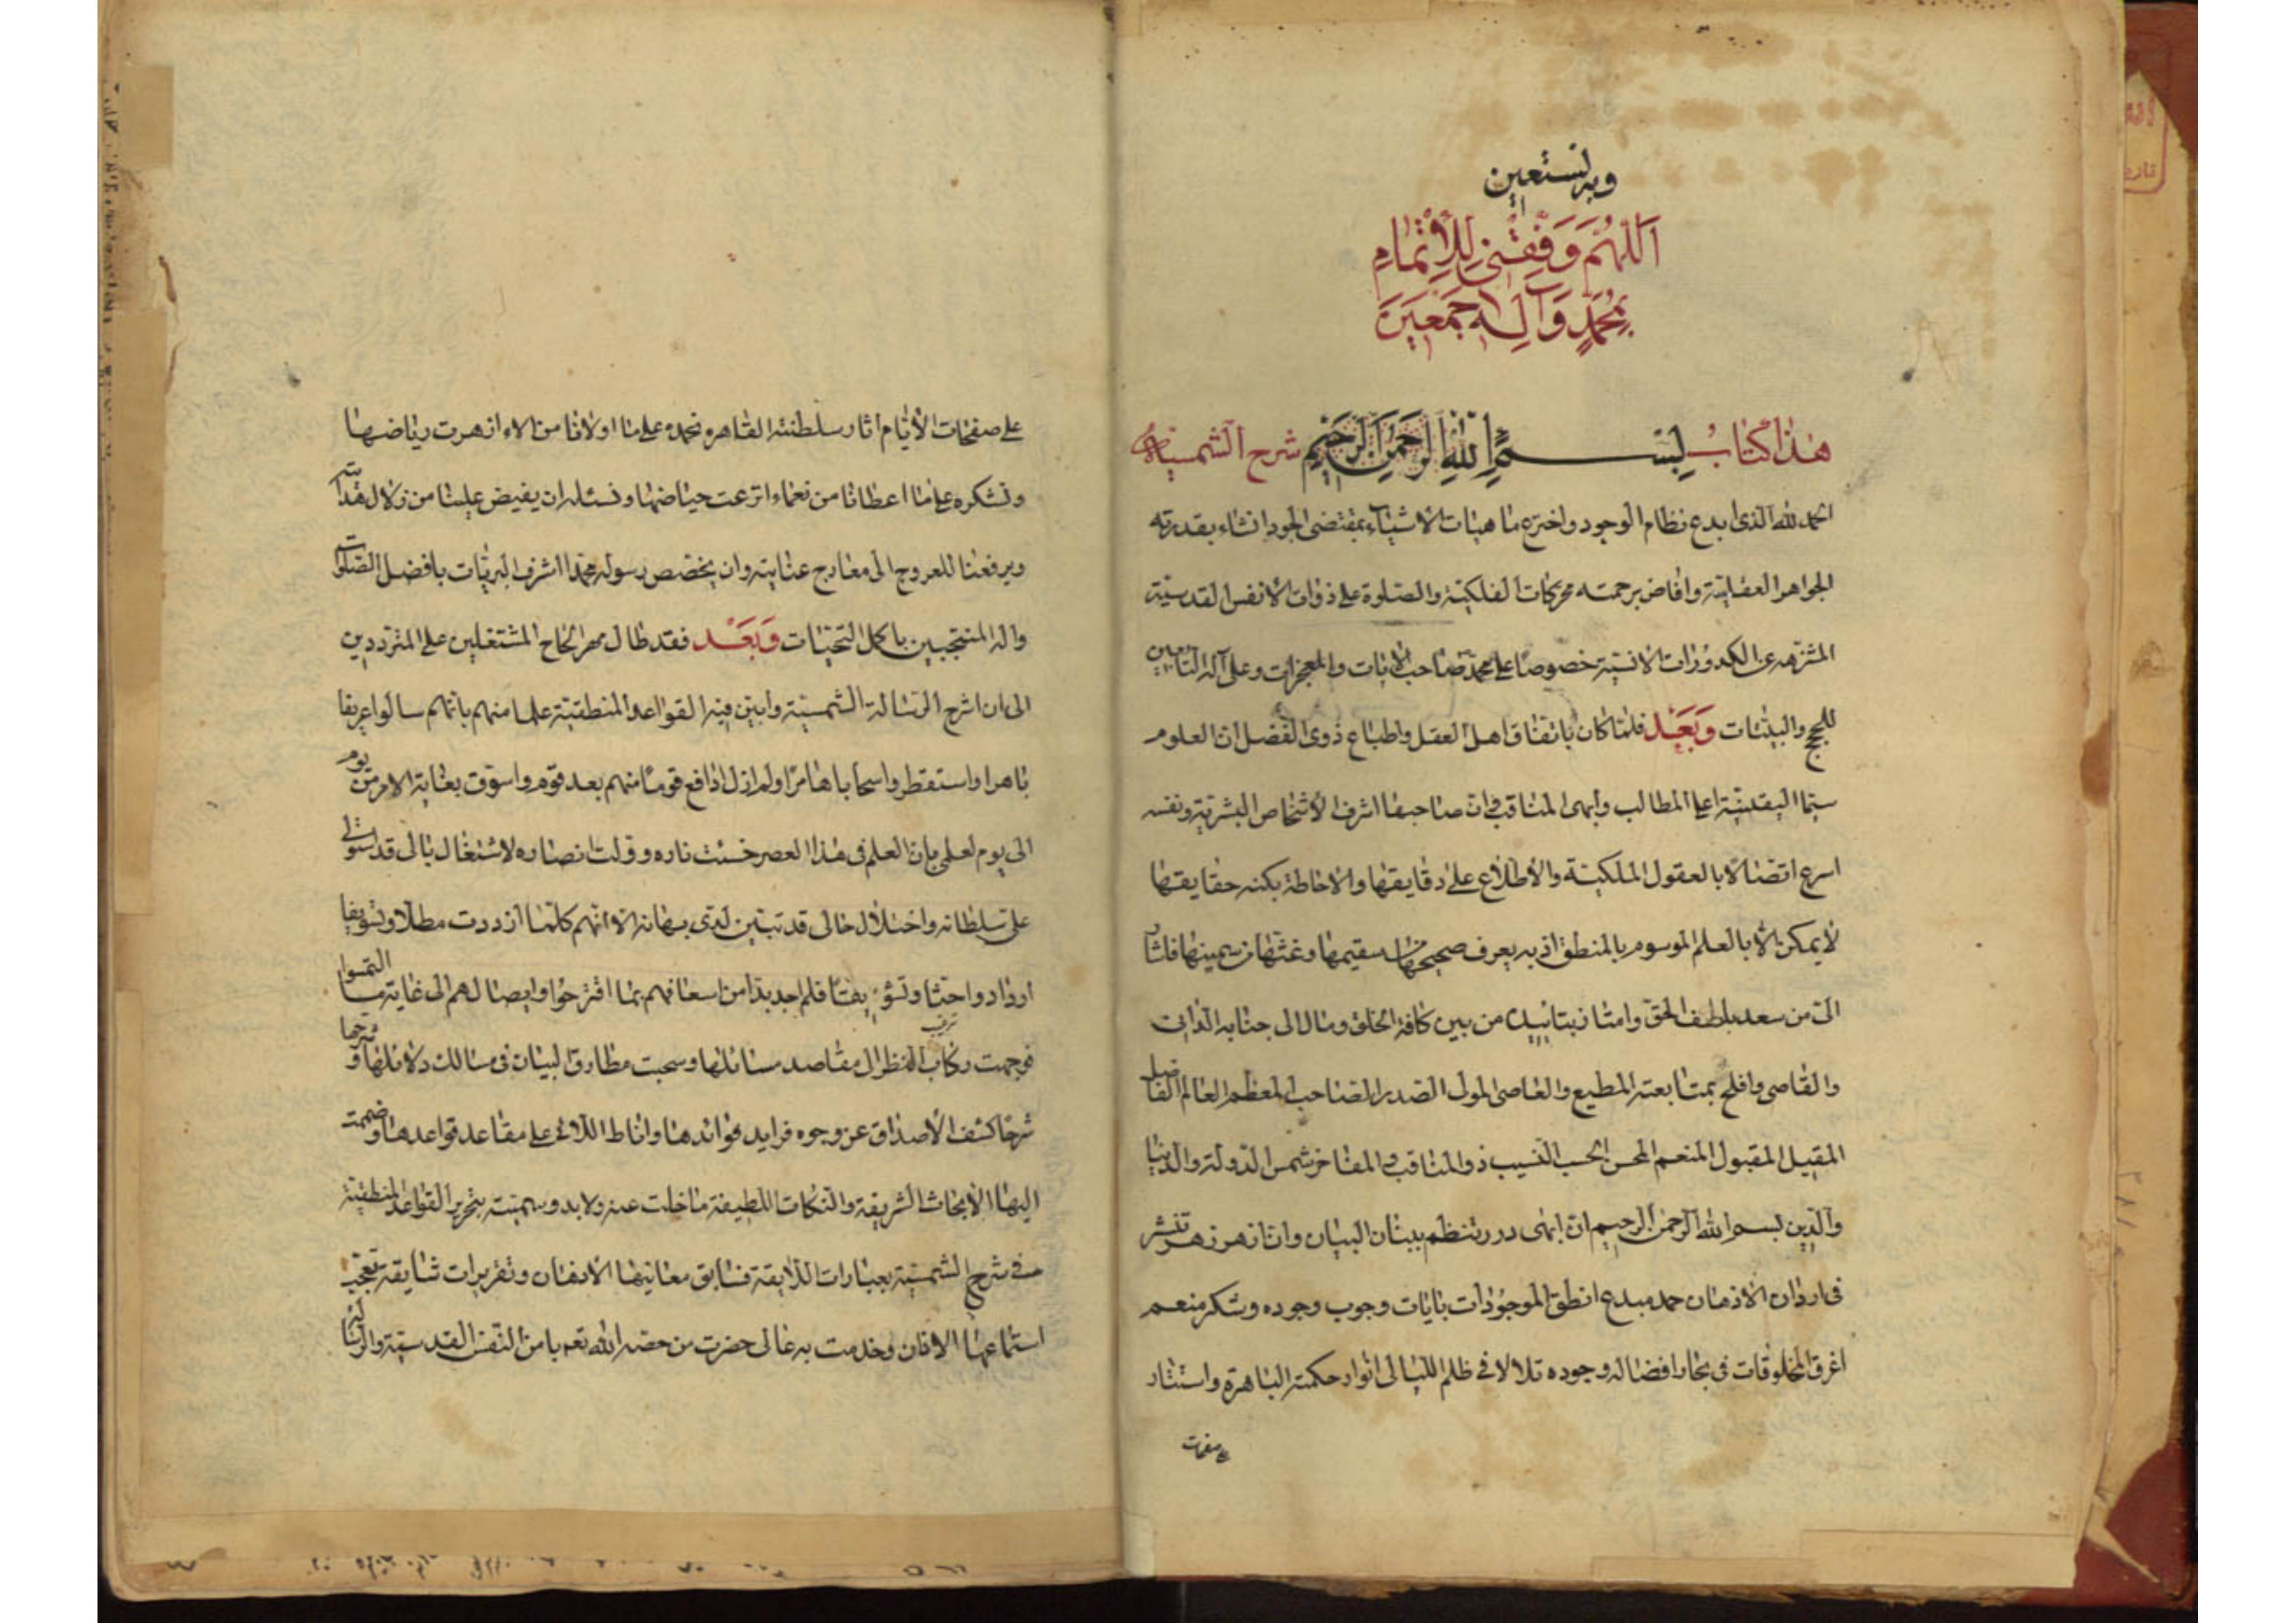 وبه نستعين
اَللّهُمَّ وَفِّقْنى لِلْاِتْمامِ
بِمُحَمَّدٍ وَآلِهِ اجمَعينَ
هذا كتابُ بِسْمِ اللهِ الرَّحمنِ الرَّحيمِ شرح الشمسية
الحمد لله الذى ابدع نظام الوجود واخترع ماهيات الاشياء بمقتضى الجود انشاء بقدرته
الجواهر العقلية وافاض برحمته محركات الفلكية والصلوة على ذوات الانفس القدسية
المنزهه عن الكدورات الانسية خصوصا على محمد صاحب الايات والمعجزات وعلى آله التابعين
للحجج والبينات وَبَعْد فلما كان باتفاق اهل العقل واطباع ذوى الفضل ان العلوم
سيما اليقينية اعلى المطالب وابهى المناقب وان صاحبها اشرف الاشخاص البشرية ونفسه
اسرع اتصالا بالعقول الملكية والاطلاع على دقايقها والاحاطة بكنه حقايقها
لا يمكن الا بالعلم الموسوم بالمنطق اذ به يعرف صحيحها من سقيمها وغثها من سمينها فاشار
الى من سعد بلطف الحق وامتاز بتاييده من بين كافة الخلق ومال الى جنابه الدانى
والقاصى وافلح بمتابعته المطيع والعاصى المولى الصدر الصاحب المعظم العالم الفاضل
المقبل المقبول المنعم المحسن الحسيب النسيب ذو المناقب والمفاخر شمس الدولة والدنيا
والدين بسم الله الرحمن الرحيم ان ابهى درر تنظم ببنان البيان وان ازهر زهر تنشر
فى اردان الاذهان حمد مبدع انطق الموجودات بايات وجوب وجوده وشكر منعم
اغرق المخلوقات فى بحار افضاله وجوده تلالا فى ظلم الليالى انوار حكمته الباهرة واستنار
على صفحات
على صفحات الأيام اثار سلطنته القاهره نحمده على ما اولانا من الاء ازهرت رياضها
ونشكره على ما اعطانا من نعماء اترعت حياضها ونسئله ان يفيض علينا من زلال هدايته
ويرفعنا للعروج الى معارج عنايته وان يخصص رسوله محمدا اشرف البريات بافضل الصلوات
واله المنتجبين باكمل التحيات وَبَعْد فقد طال الحاح المشتغلين على المترددين
الى ان اشرح الرسالة الشمسية وابين فيه القواعد المنطقية علما منهم بانهم سالوا عريفا
ماهرا واستمطروا سحابا هامرا ولم ازل ادافع قوما منهم بعد قوم واسوق بغاية الامر من يوم
الى يوم لعلمى بان العلم فى هذا العصر خبت ناره وقلت انصاره لاشتغال بالى قد استولى
على سلطانه واختلال حالى قد تبين لدى برهانه الا انهم كلما ازددت مطلا وتسويفا
ازداد واحثا وتشويقا فلم اجد بدا من اسعافهم بما اقترحوا وايصالهم الى غاية ما التمسوا
فوجهت ركاب النظر الى مقاصد مسائلها وسحبت مطارف البيان فى مسالك دلائلها وشرحتها
شرحا كشف الاصداف عن وجوه فرايد فوائدها واناط اللالى على معاقد قواعدها وضممت
اليها الابحاث الشريفة والنكات اللطيفة ما خلت عنه ولابد وسميته بتحرير القواعد المنطقية
فى شرح الشمسية بعبارات الرايقة تسابق معانيها الاذهان وتقريرات شايقة تعجب
استماعها الاذان وخدمت به عالى حضرت من خصه الله تعم بامن النفس القدسية والرئاسة